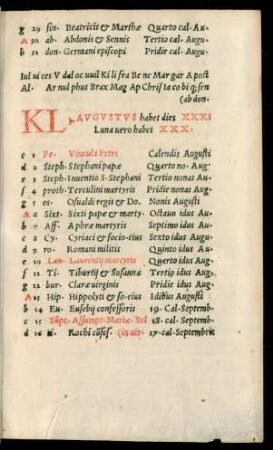 g 29 sin- Beatricis & Marthæ Quarto cal-Au-
A 30 ab- Abdonis & Sennis Tertio cal-Augu-
b 31 don- Germani episcopi Pridie cal-Augu-
Iul ui ces V dal oc uuil Ki li fra Be ne Mar gar A post
Al- Ar nul phus Brax Mag Ap Chris Ia co bi q; sen
(ab don-
KL AVGVSTVS habet dies XXXI
Luna uero habet XXX-
c 1 Pe- Vincula Petri Calendis Augusti
d 2 Steph- Stephani papæ Quarto no- Aug-
e 3 Steph- Inuentio S-Stephani Tertio nonas Au-
f 4 proth- Terculini martyris Pridie nonas Aug-
g 5 os- Osualdi regis & Do- Nonis Augusti
A 6 Sixt- Sixti papæ & marty- Octauo idus Au-
b 7 Aff- Aphræ martyris Septimo idus Au-
c 8 Cy- Cyriaci & socio-eius Sexto idus Augu-
d 9 ro- Romani militis Quinto idus Au-
e 10 Lau- Laurentij martyris Quarto idus Aug-
f 11 Ti- Tiburtij & Susannæ Tertio idus Aug-
g 12 bur- Claræ uirginis Pridie idus Aug-
A 13 Hip- Hippolyti & so-eius Idibus Augusti
b 14 Eu- Eusebij confessoris 19-Cal-Septemb-
c 15 Assumpt-Mariæ-Sol 18-cal-Septemb-
d 16 Rochi cōfes- (in uir- 17-cal-Septembris